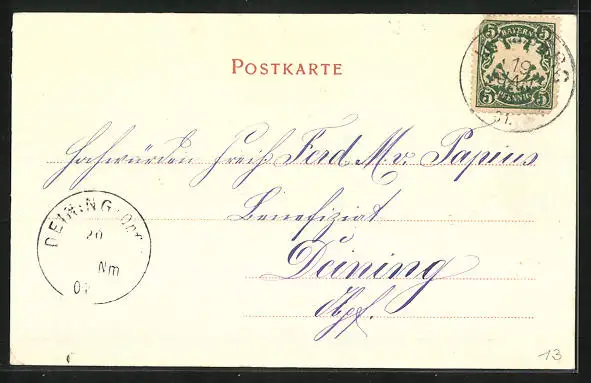 POSTKARTE
5 BAYERN 5
5 PFENNIG 5
19
01.
Hochwürden Freih. Ferd. M. v. Papius
Benefiziat
Deining
Obpf.
DEINING OPF
20
Nm
01
13